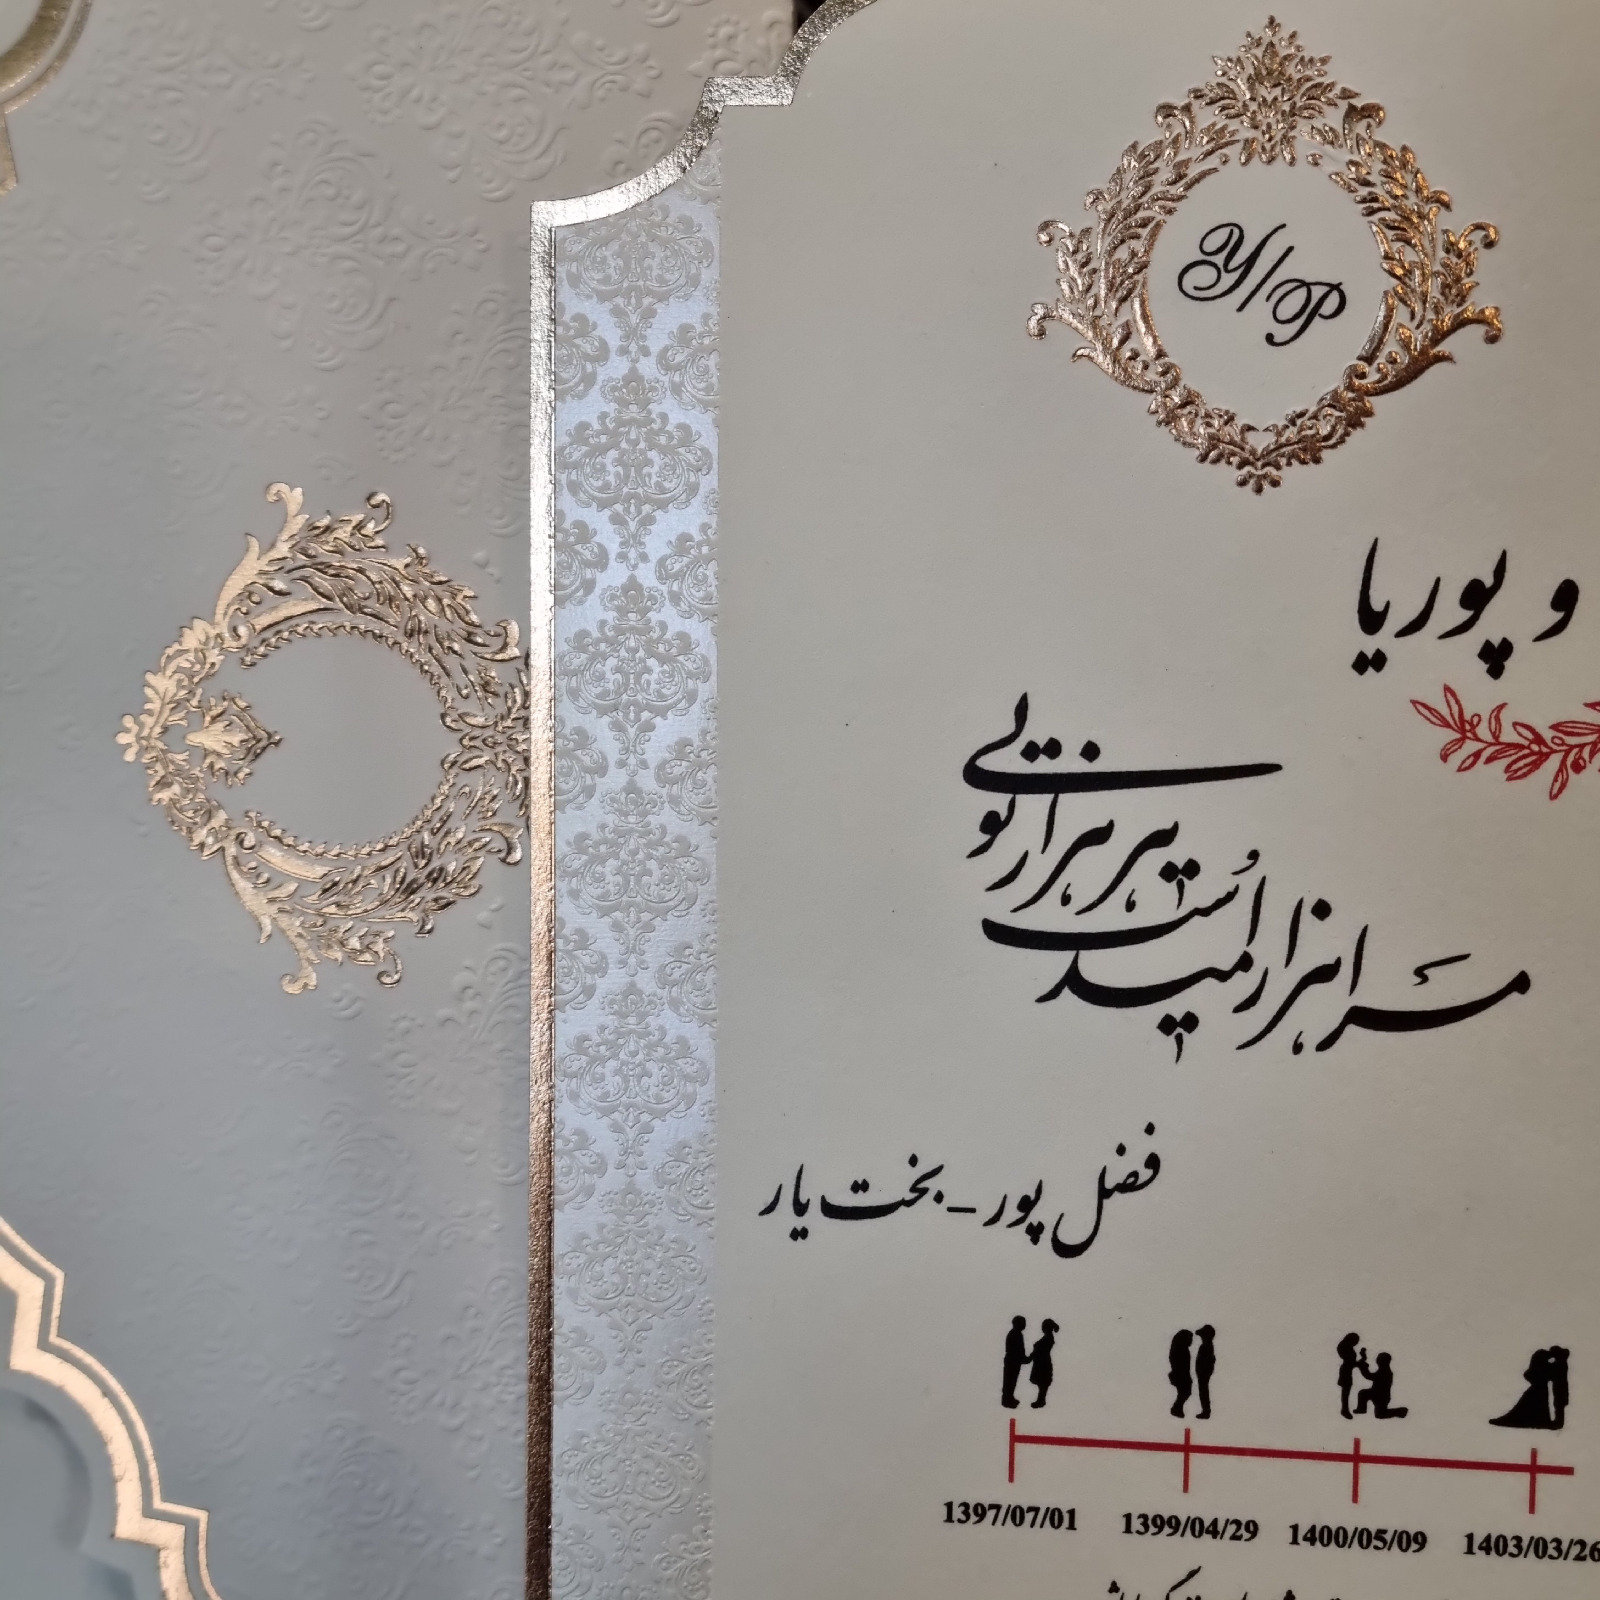 Y/P
و پوریا
مرا هزار امید است و هر هزار تویی
فضل پور - بخت یار
1397/07/01 1399/04/29 1400/05/09 1403/03/26